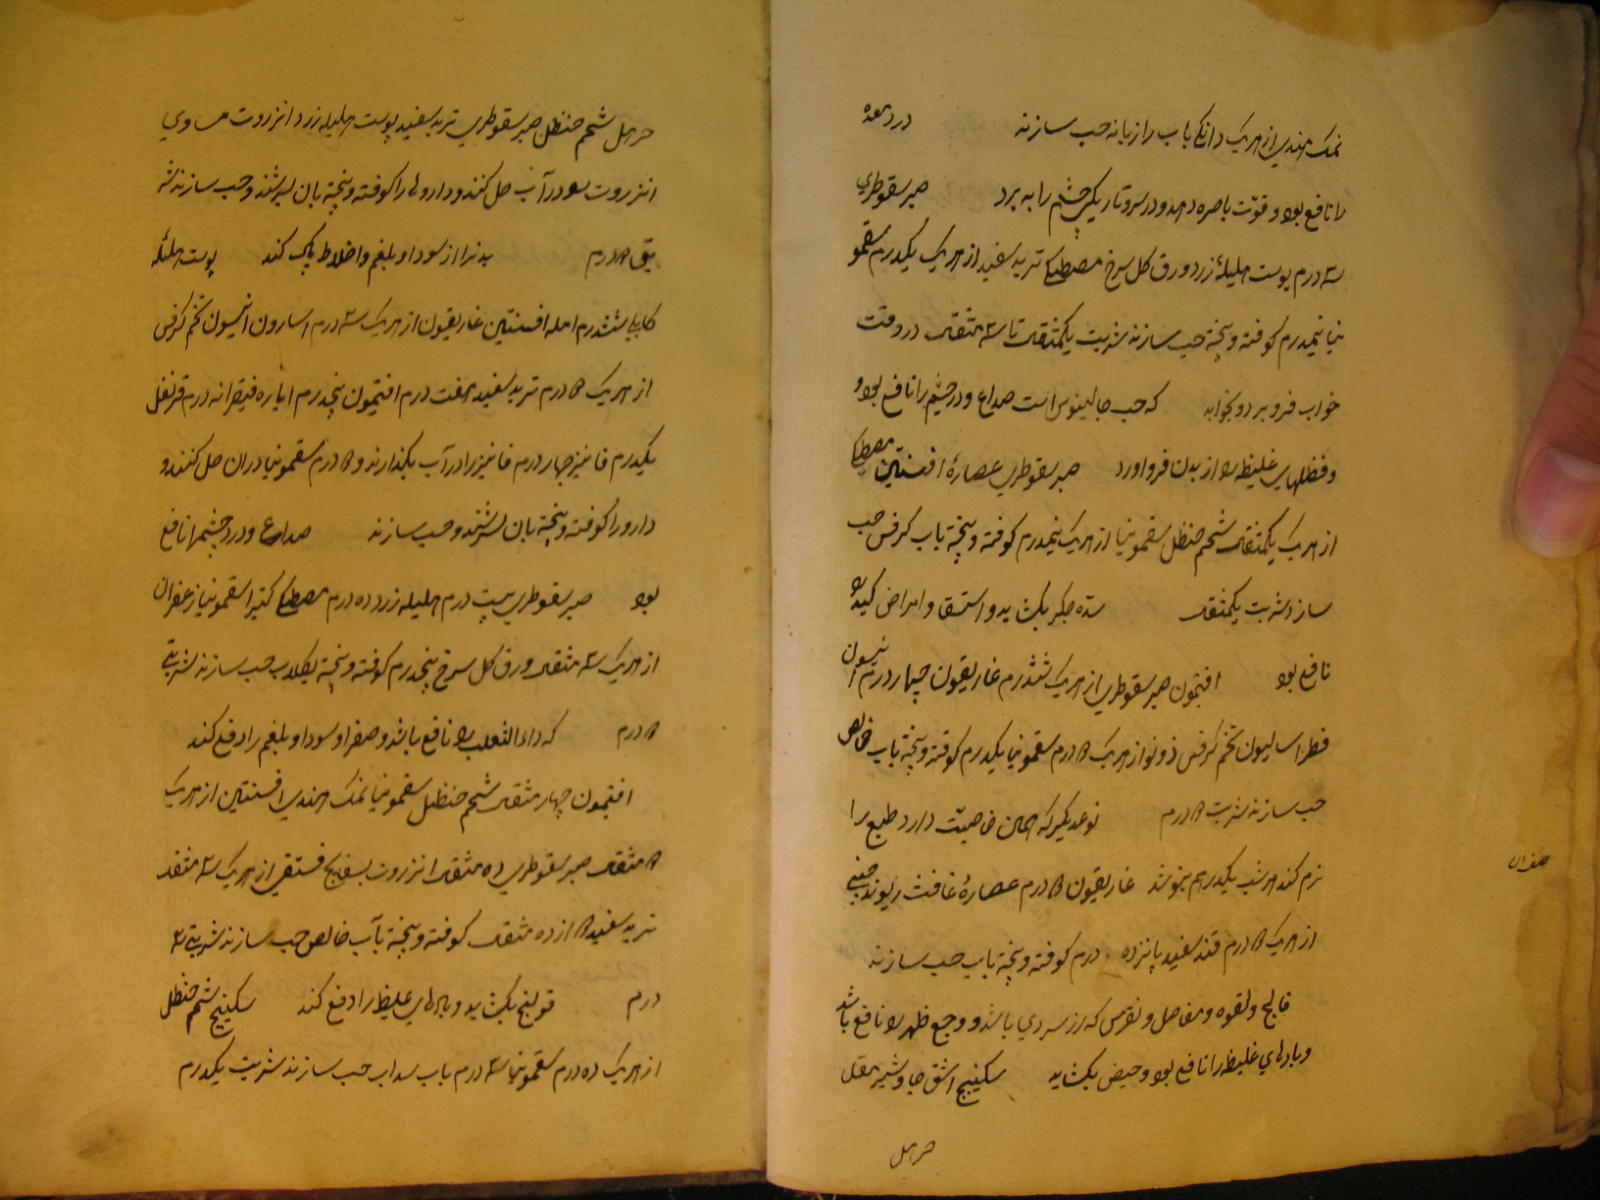 نمک هندی از هریک دانکی باب رازیانه حب سازند درد معده
را نافع بود و قوّت باصره دهد و درد سر و تاریکی چشم را به برد صبر سقوطری
سه درم پوست هلیلهٔ زرد ورق کل سرخ مصطکی تربد سفید از هریک یکدرم سقمو
نیا نیمدرم کوفته و بیخته حب سازند شربت یکمثقال تا سه مثقال در وقت
خواب فرو برد و بخوابد که حب جالینوس است صداع و درد چشم را نافع بود و
و فضلهای غلیظ را از بدن فرو اورد صبر سقوطری عصارهٔ افسنتین مصطکی
از هریک یکمثقال شحم حنظل سقمونیا از هریک نیمدرم کوفته و بیخته باب کرفس حب
سازد شربت یکمثقال سدّه جکر بکشاید و استسقا و امراض کبد را
نافع بود افتیمون صبر سقوطری از هریک ششدرم غاریقون چهار درم انیسون
فطراسالیون تخم کرفس ذوفو از هریک ۲ درم سقمونیا یکدرم کوفته و بیخته باب خالص
حب سازند شربت ۲ درم نوعدیکر که همان خاصیّت دارد طبع را
نرم کند هر شب یکدرهم بنوشد غاریقون ۲ درم عصارهٔ غافث ریوند چینی
از هریک ۲ درم قند سفید پانزده درم کوفته و بیخته باب حب سازند
فالج و لقوه و مفاصل و نقرس که از سردی باشد و وجع ظهر را نافع باشد
و بادهای غلیظ را نافع بود و حیض بکشاید سکبینج اشق جاوشیر مقل
حرمل
حرمل شحم حنظل صبر سقوطری تربد سفید پوست هلیله زرد انزروت مساوی
انزروت را در آب حل کنند و داروها را کوفته و بیخته بان بسرشند و حب سازند شر
بتی ۲ درم بدنرا از سودا و بلغم و اخلاط پاک کند پوست هلیلهٔ
کابلی ششدرم امله افسنتین غاریقون از هریک سه درم اسارون انیسون تخم کرفس
از هریک ۲ درم تربد سفید هفت درم افتیمون پنجدرم ایاره فیقرا نه درم قرنفل
یکدرم فانیز چهار درم فانیز را در آب بکذارند و ۲ درم سقمونیا دران حل کنند و
دارو را کوفته و بیخته بان بسرشند و حب سازند صداع و درد چشمها نافع
بود صبر سقوطری بیست درم هلیله زرد ده درم مصطکی کتیرا سقمونیا زعفران
از هریک سه مثقال ورق کل سرخ پنجدرم کوفته و بیخته بکلاب حب سازند شربتی
۲ درم که داء الثعلب را نافع باشد و صفرا و سودا و بلغم را دفع کند
افتیمون چهار مثقال شحم حنظل سقمونیا نمک هندی افسنتین از هریک
۲ مثقال صبر سقوطری ده مثقال انزروت بسفایج فستقی از هریک سه مثقال
تربد سفید ۲ از ده مثقال کوفته و بیخته بآب خالص حب سازند شربتی سه
درم قولنج بکشاید و بادهای غلیظ را دفع کند سکبینج شحم حنظل
از هریک ده درم سقمونیا سه درم باب سداب حب سازند شربت یکدرم